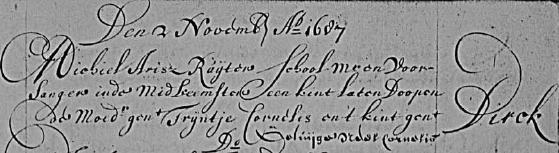 Den 2 Novemb Ao 1687
Michiel Aris Ruijter School mr en Voor-
sanger inde Midbeemster een kint laten Doopen
de Moedr gent Trijntje Cornelis en t kint gent
Dirck
De Neel Cornelis